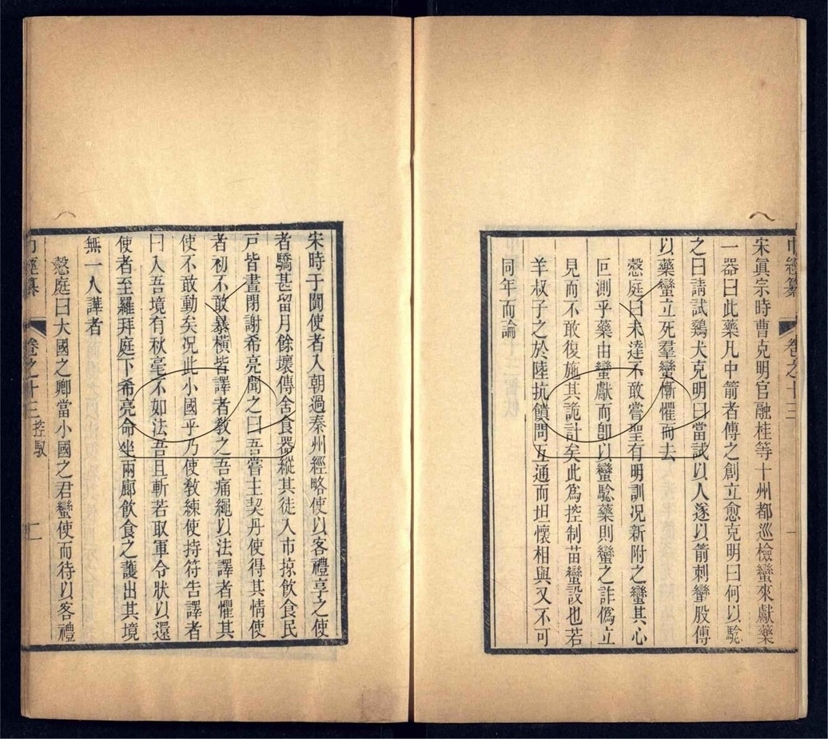 巾經纂
卷之十三
一
宋眞宗時曹克明官融桂等十州都巡檢蠻來獻藥
一器曰此藥凡中箭者傅之創立愈克明曰何以騐
之曰請試鷄犬克明曰當試以人遂以箭刺蠻股傅
以藥蠻立死羣蠻慚懼而去
慤庭曰未達不敢嘗聖有明訓况新附之蠻其心
叵測乎藥由蠻獻而卽以蠻騐藥則蠻之詐僞立
見而不敢復施其詭計矣此為控制苗蠻設也若
羊叔子之於陸抗饋問互通而坦懷相與又不可
同年而論
宋時于闐使者入朝過秦州經略使以客禮享之使
者驕甚留月餘壞傳舍食器縱其徒入市掠飲食民
戸皆晝閉謝希亮聞之曰吾嘗主契丹使得其情使
者初不敢暴橫皆譯者敎之吾痛繩以法譯者懼其
使不敢動矣况此小國乎乃使敎練使持符告譯者
曰入吾境有秋毫不如法吾且斬若取軍令狀以還
使者至羅拜庭下希亮命坐兩廊飲食之護出其境
無一人譁者
慤庭曰大國之卿當小國之君蠻使而待以客禮
巾經纂
卷之十三
控馭
二